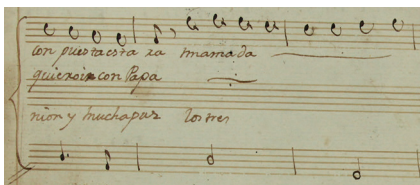 con puesta esta la mamada
quieroir con Papa
nion y mucha paz los tres